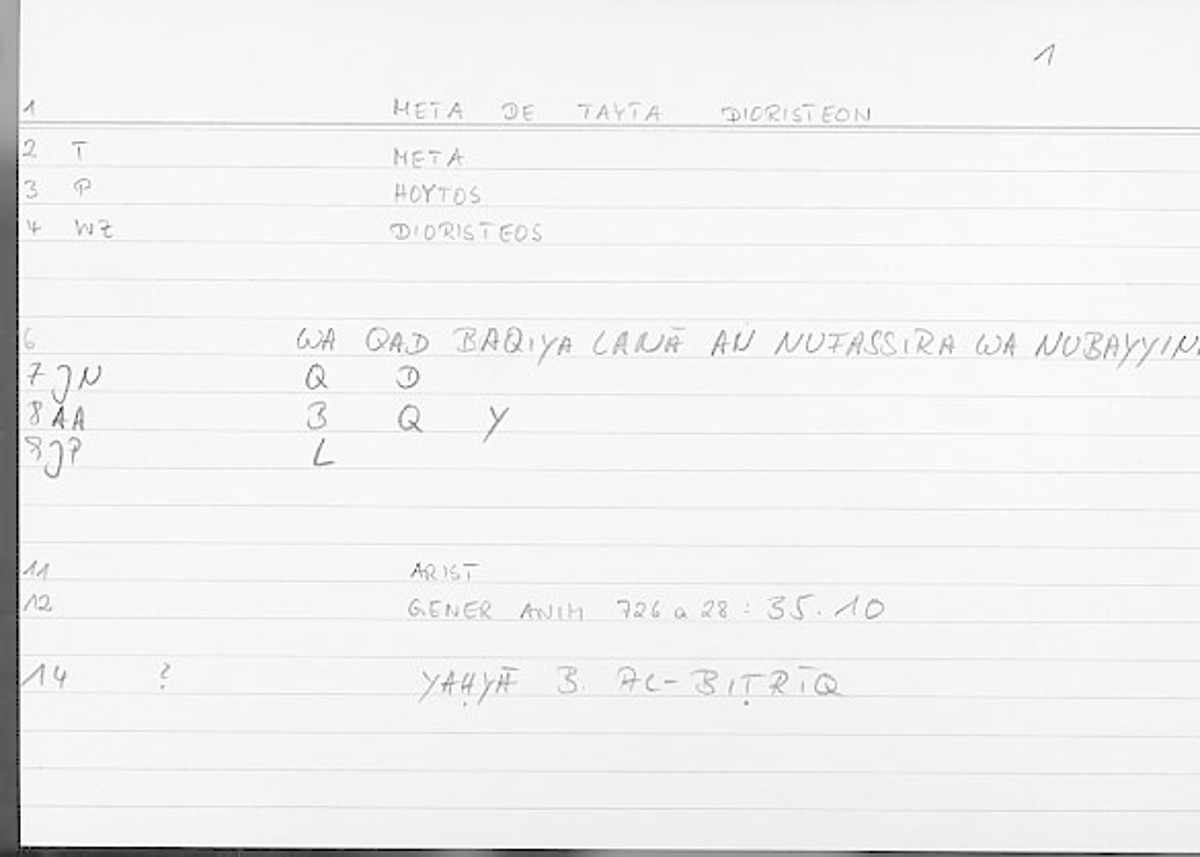 1
1 META DE TAYTA DIORISTEON
2 T META
3 P HOYTOS
4 WZ DIORISTEOS
6 WA QAD BAQIYA LANĀ AN NUFASSIRA WA NUBAYYIN
7 JN Q D
8 AA B Q Y
9 JP L
11 ARIST
12 GENER ANIM 726 a 28 : 35.10
14 ? YAḤYĀ B. AL-BIṬRĪQ